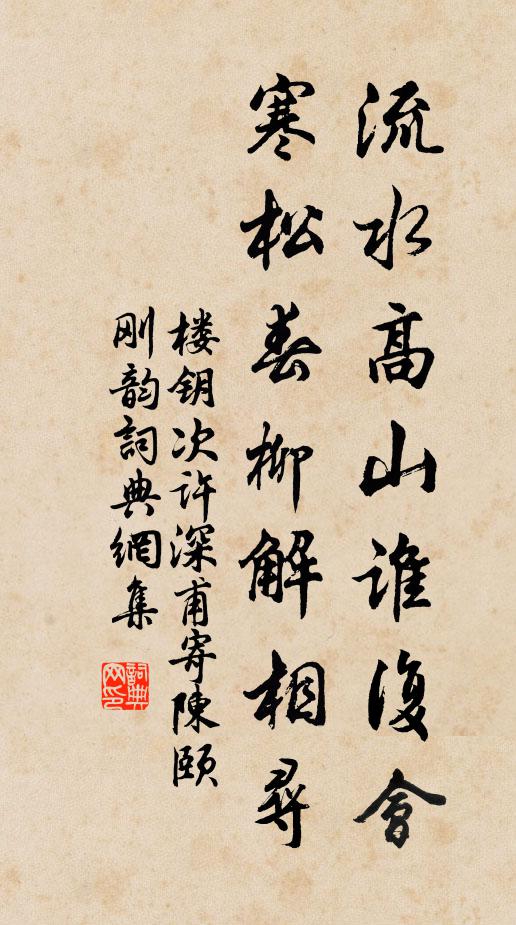 流水高山谁復會
寒松春柳解相尋
楼钥次许深甫寄陳颐
刚韵詞典網集
詞典网印